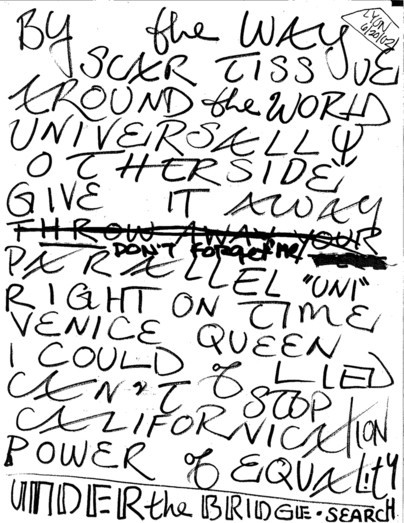 BY the WAY
LYON
6/20/02
SCAR TISSUE
AROUND the WORLD
UNIVERSALLY
OTHERSIDE
GIVE IT AWAY
THROW AWAY YOUR
DON'T FORGET ME
PARALLEL "UNI"
RIGHT ON TIME
VENICE QUEEN
I COULD of LIED
CAN'T STOP
CALIFORNICATION
POWER of EQUALITY
UNDER the BRIDGE • SEARCH